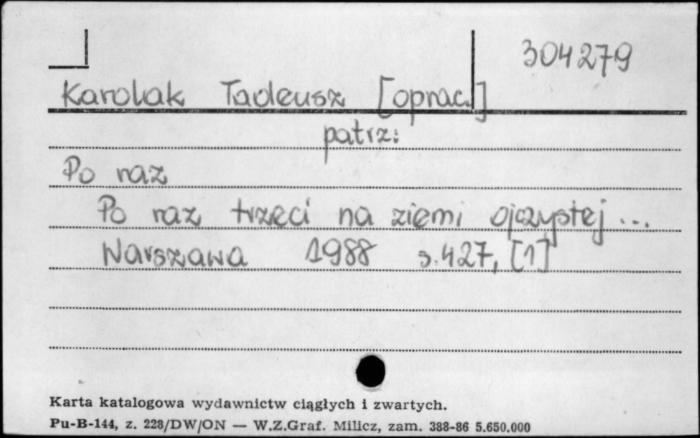 304279
Karolak Tadeusz [oprac.]
patrz:
Po raz
Po raz trzeci na ziemi ojczystej ...
Warszawa 1988 s.427, [1]
Karta katalogowa wydawnictw ciągłych i zwartych.
Pu-B-144, z. 228/DW/ON — W.Z.Graf. Milicz, zam. 388-86 5.650.000